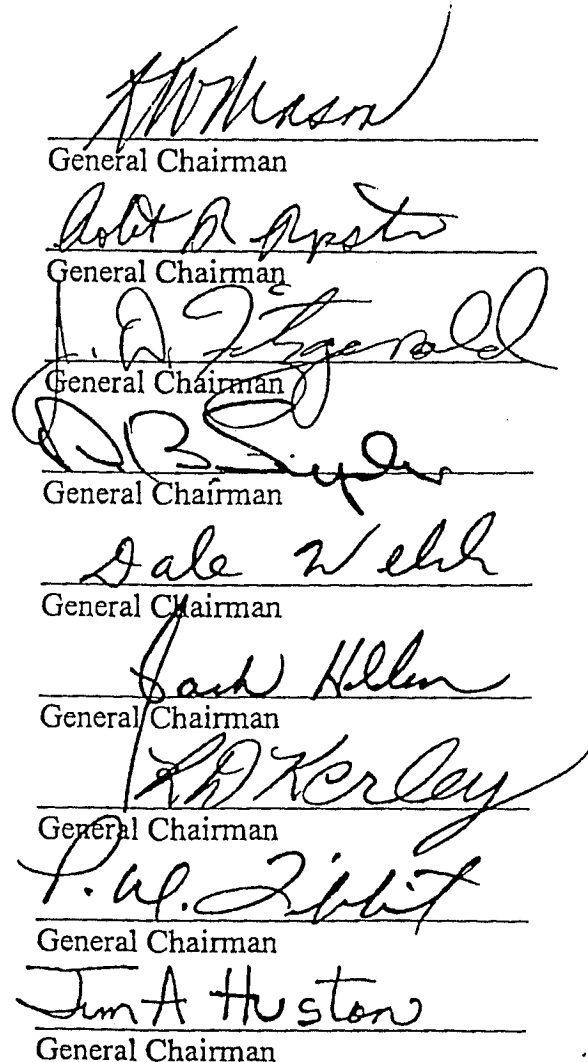 K W Mason
General Chairman
Robt R
General Chairman
J. D. Fitzgerald
General Chairman
D B Snyder
General Chairman
Dale Welch
General Chairman
Jack
General Chairman
R D Kerley
General Chairman
P. W. Tibbit
General Chairman
Jim A Huston
General Chairman